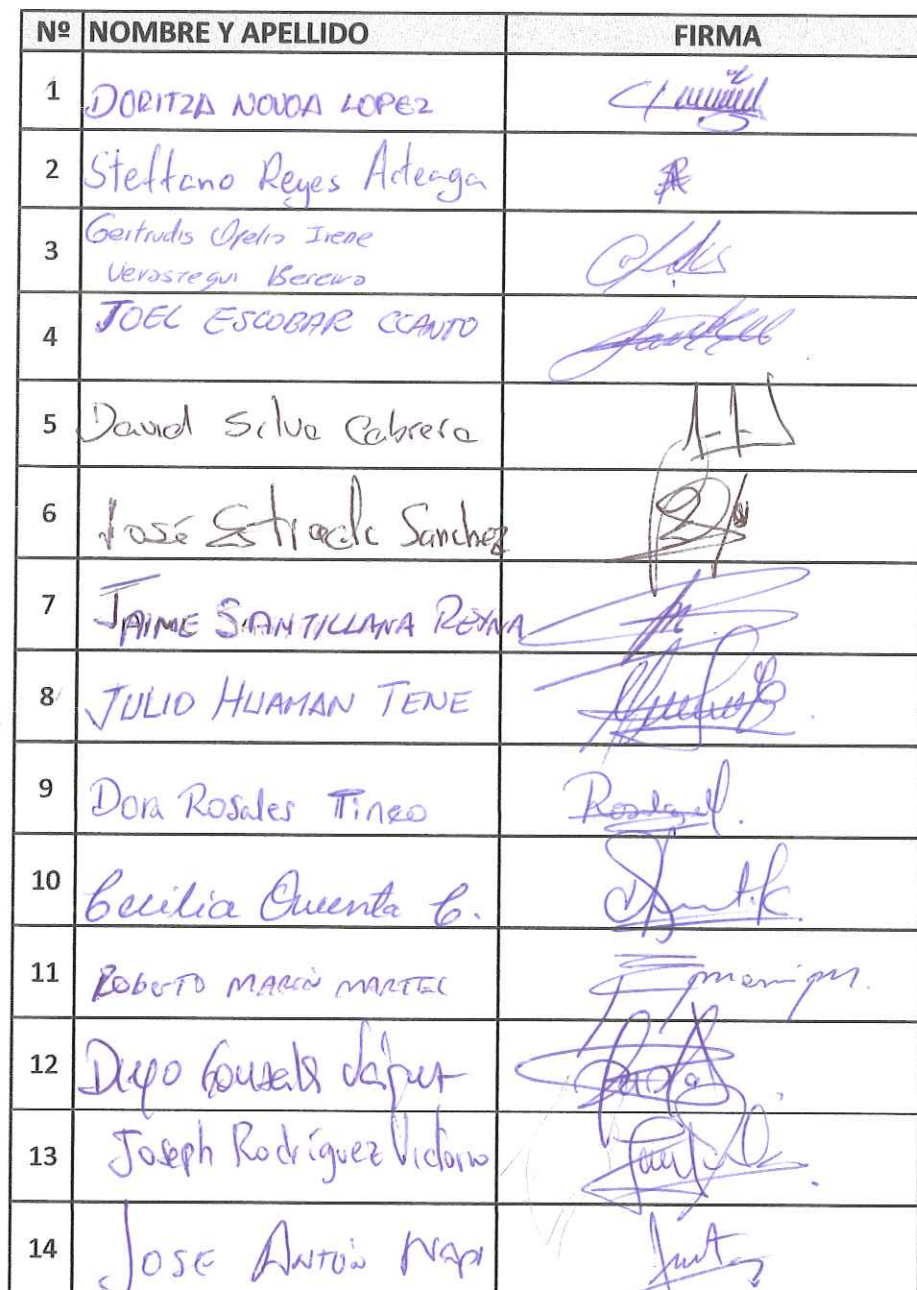 Nº NOMBRE Y APELLIDO FIRMA
1 DORITZA NOVOA LOPEZ
2 Steffano Reyes Arteaga
3 Gertrudis Ofelia Irene
Verastegui Bereiro
4 JOEL ESCOBAR CCANTO
5 David Silva Cabrera
6 José Estrada Sanchez
7 JAIME SANTILLANA REYNA
8 JULIO HUAMAN TENE
9 Dora Rosales Tineo
10 Cecilia Quenta C.
11 ROBERTO MARÍN MARTEL
12 Diego Gonzales
13 Joseph Rodríguez Victorio
14 JOSE ANTÓN